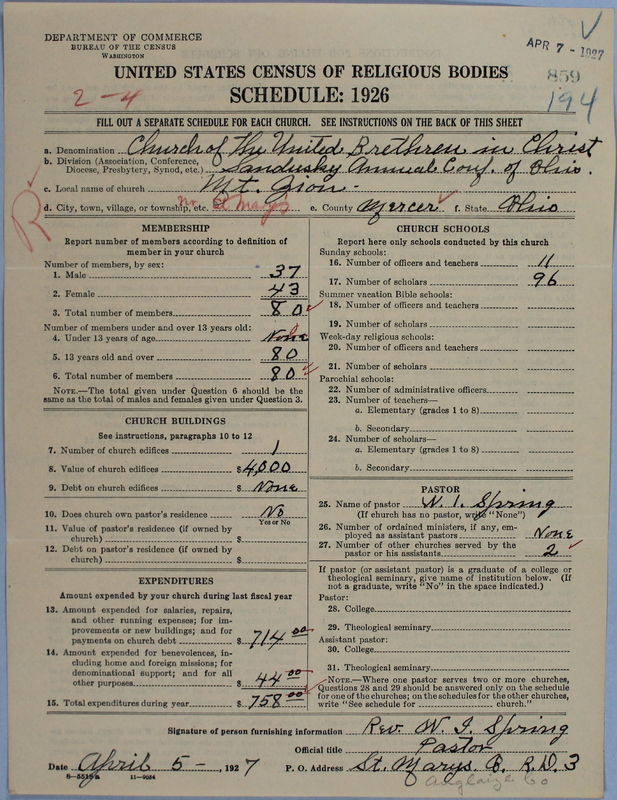 DEPARTMENT OF COMMERCE
BUREAU OF THE CENSUS
WASHINGTON
APR 7 - 1927
859
194
2-4
UNITED STATES CENSUS OF RELIGIOUS BODIES
SCHEDULE: 1926
FILL OUT A SEPARATE SCHEDULE FOR EACH CHURCH. SEE INSTRUCTIONS ON THE BACK OF THIS SHEET
a. Denomination Church of The United Brethren in Christ
b. Division (Association, Conference, Diocese, Presbytery, Synod, etc.) Sandusky Annual Conf. of Ohio.
c. Local name of church Mt. Zion -
d. City, town, village, or township, etc. nr. St Marys e. County Mercer f. State Ohio
R
MEMBERSHIP
Report number of members according to definition of
member in your church
Number of members, by sex:
1. Male 37
2. Female 43
3. Total number of members 80
Number of members under and over 13 years old:
4. Under 13 years of age None
5. 13 years old and over 80
6. Total number of members 80
NOTE.—The total given under Question 6 should be
same as the total of males and females given under Question 3.
CHURCH BUILDINGS
See instructions, paragraphs 10 to 12
7. Number of church edifices 1
8. Value of church edifices $4,000
9. Debt on church edifices $ None
10. Does church own pastor's residence No
Yes or No
11. Value of pastor's residence (if owned by
church) $
12. Debt on pastor's residence (if owned by
church) $
EXPENDITURES
Amount expended by your church during last fiscal year
13. Amount expended for salaries, repairs,
and other running expenses; for im-
provements or new buildings; and for
payments on church debt $ 714 00
14. Amount expended for benevolences, in-
cluding home and foreign missions; for
denominational support; and for all
other purposes $ 44 00
15. Total expenditures during year $ 758 00
CHURCH SCHOOLS
Report here only schools conducted by this church
Sunday schools:
16. Number of officers and teachers 11
17. Number of scholars 96
Summer vacation Bible schools:
18. Number of officers and teachers
19. Number of scholars
Week-day religious schools:
20. Number of officers and teachers
21. Number of scholars
Parochial schools:
22. Number of administrative officers
23. Number of teachers—
a. Elementary (grades 1 to 8)
b. Secondary
24. Number of scholars—
a. Elementary (grades 1 to 8)
b. Secondary
PASTOR
25. Name of pastor W. I. Spring
(If church has no pastor, write "None")
26. Number of ordained ministers, if any, em-
ployed as assistant pastors None
27. Number of other churches served by the
pastor or his assistants 2
If pastor (or assistant pastor) is a graduate of a college or
theological seminary, give name of institution below. (If
not a graduate, write "No" in the space indicated.)
Pastor:
28. College
29. Theological seminary
Assistant pastor:
30. College
31. Theological seminary
NOTE.—Where one pastor serves two or more churches,
Questions 28 and 29 should be answered only on the schedule
for one of the churches; on the schedules for the other churches,
write "See schedule for church."
Signature of person furnishing information Rev. W. I. Spring
Official title Pastor
Date April 5 -, 1927 P. O. Address St. Marys O. R.D. 3
8-5518a 11-9034
Auglaize Co